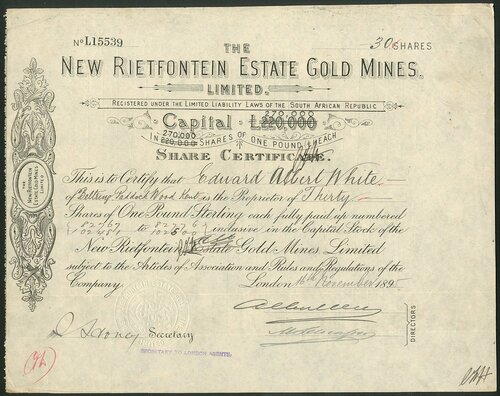 No L15539
30 SHARES
THE
NEW RIETFONTEIN ESTATE GOLD MINES,
LIMITED.
REGISTERED UNDER THE LIMITED LIABILITY LAWS OF THE SOUTH AFRICAN REPUBLIC
270,000
Capital £220,000
270,000
IN 220,000 SHARES OF ONE POUND EACH
SHARE CERTIFICATE.
This is to Certify that Edward Albert White
of Paddock Wood Kent is the Proprietor of Thirty
Shares of One Pound Sterling each fully paid up numbered
to inclusive in the Capital Stock of the
New Rietfontein Estate Gold Mines Limited
subject to the Articles of Association and Rules and Regulations of the
Company. London 16th November 189
Secretary
SECRETARY TO LONDON AGENTS.
DIRECTORS
THE
NEW RIETFONTEIN
ESTATE GOLD MINES
LIMITED